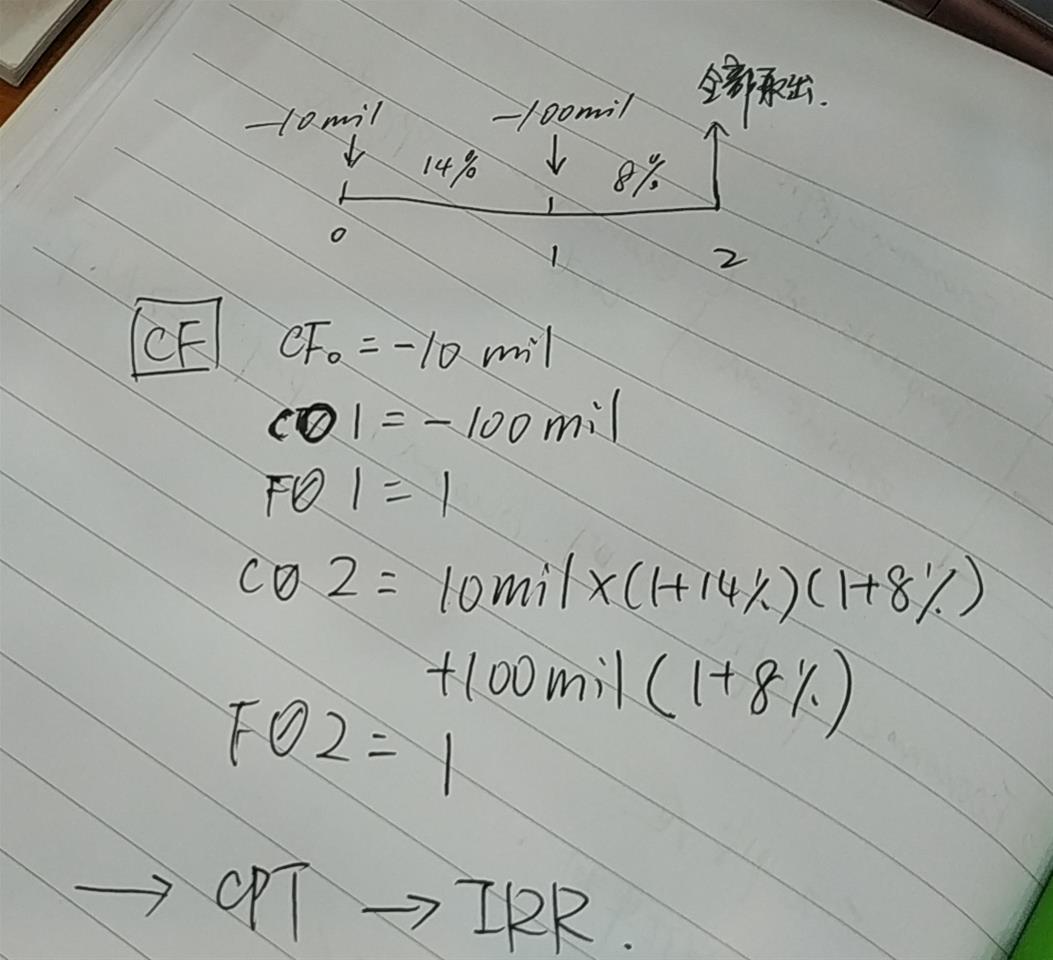 全部取出.
-10mil -100mil
14% 8%
0 1 2
CF CF₀ = -10 mil
C01 = -100mil
F01 = 1
C02 = 10mil×(1+14%)(1+8%)
+100mil(1+8%)
F02 = 1
→ CPT → IRR.